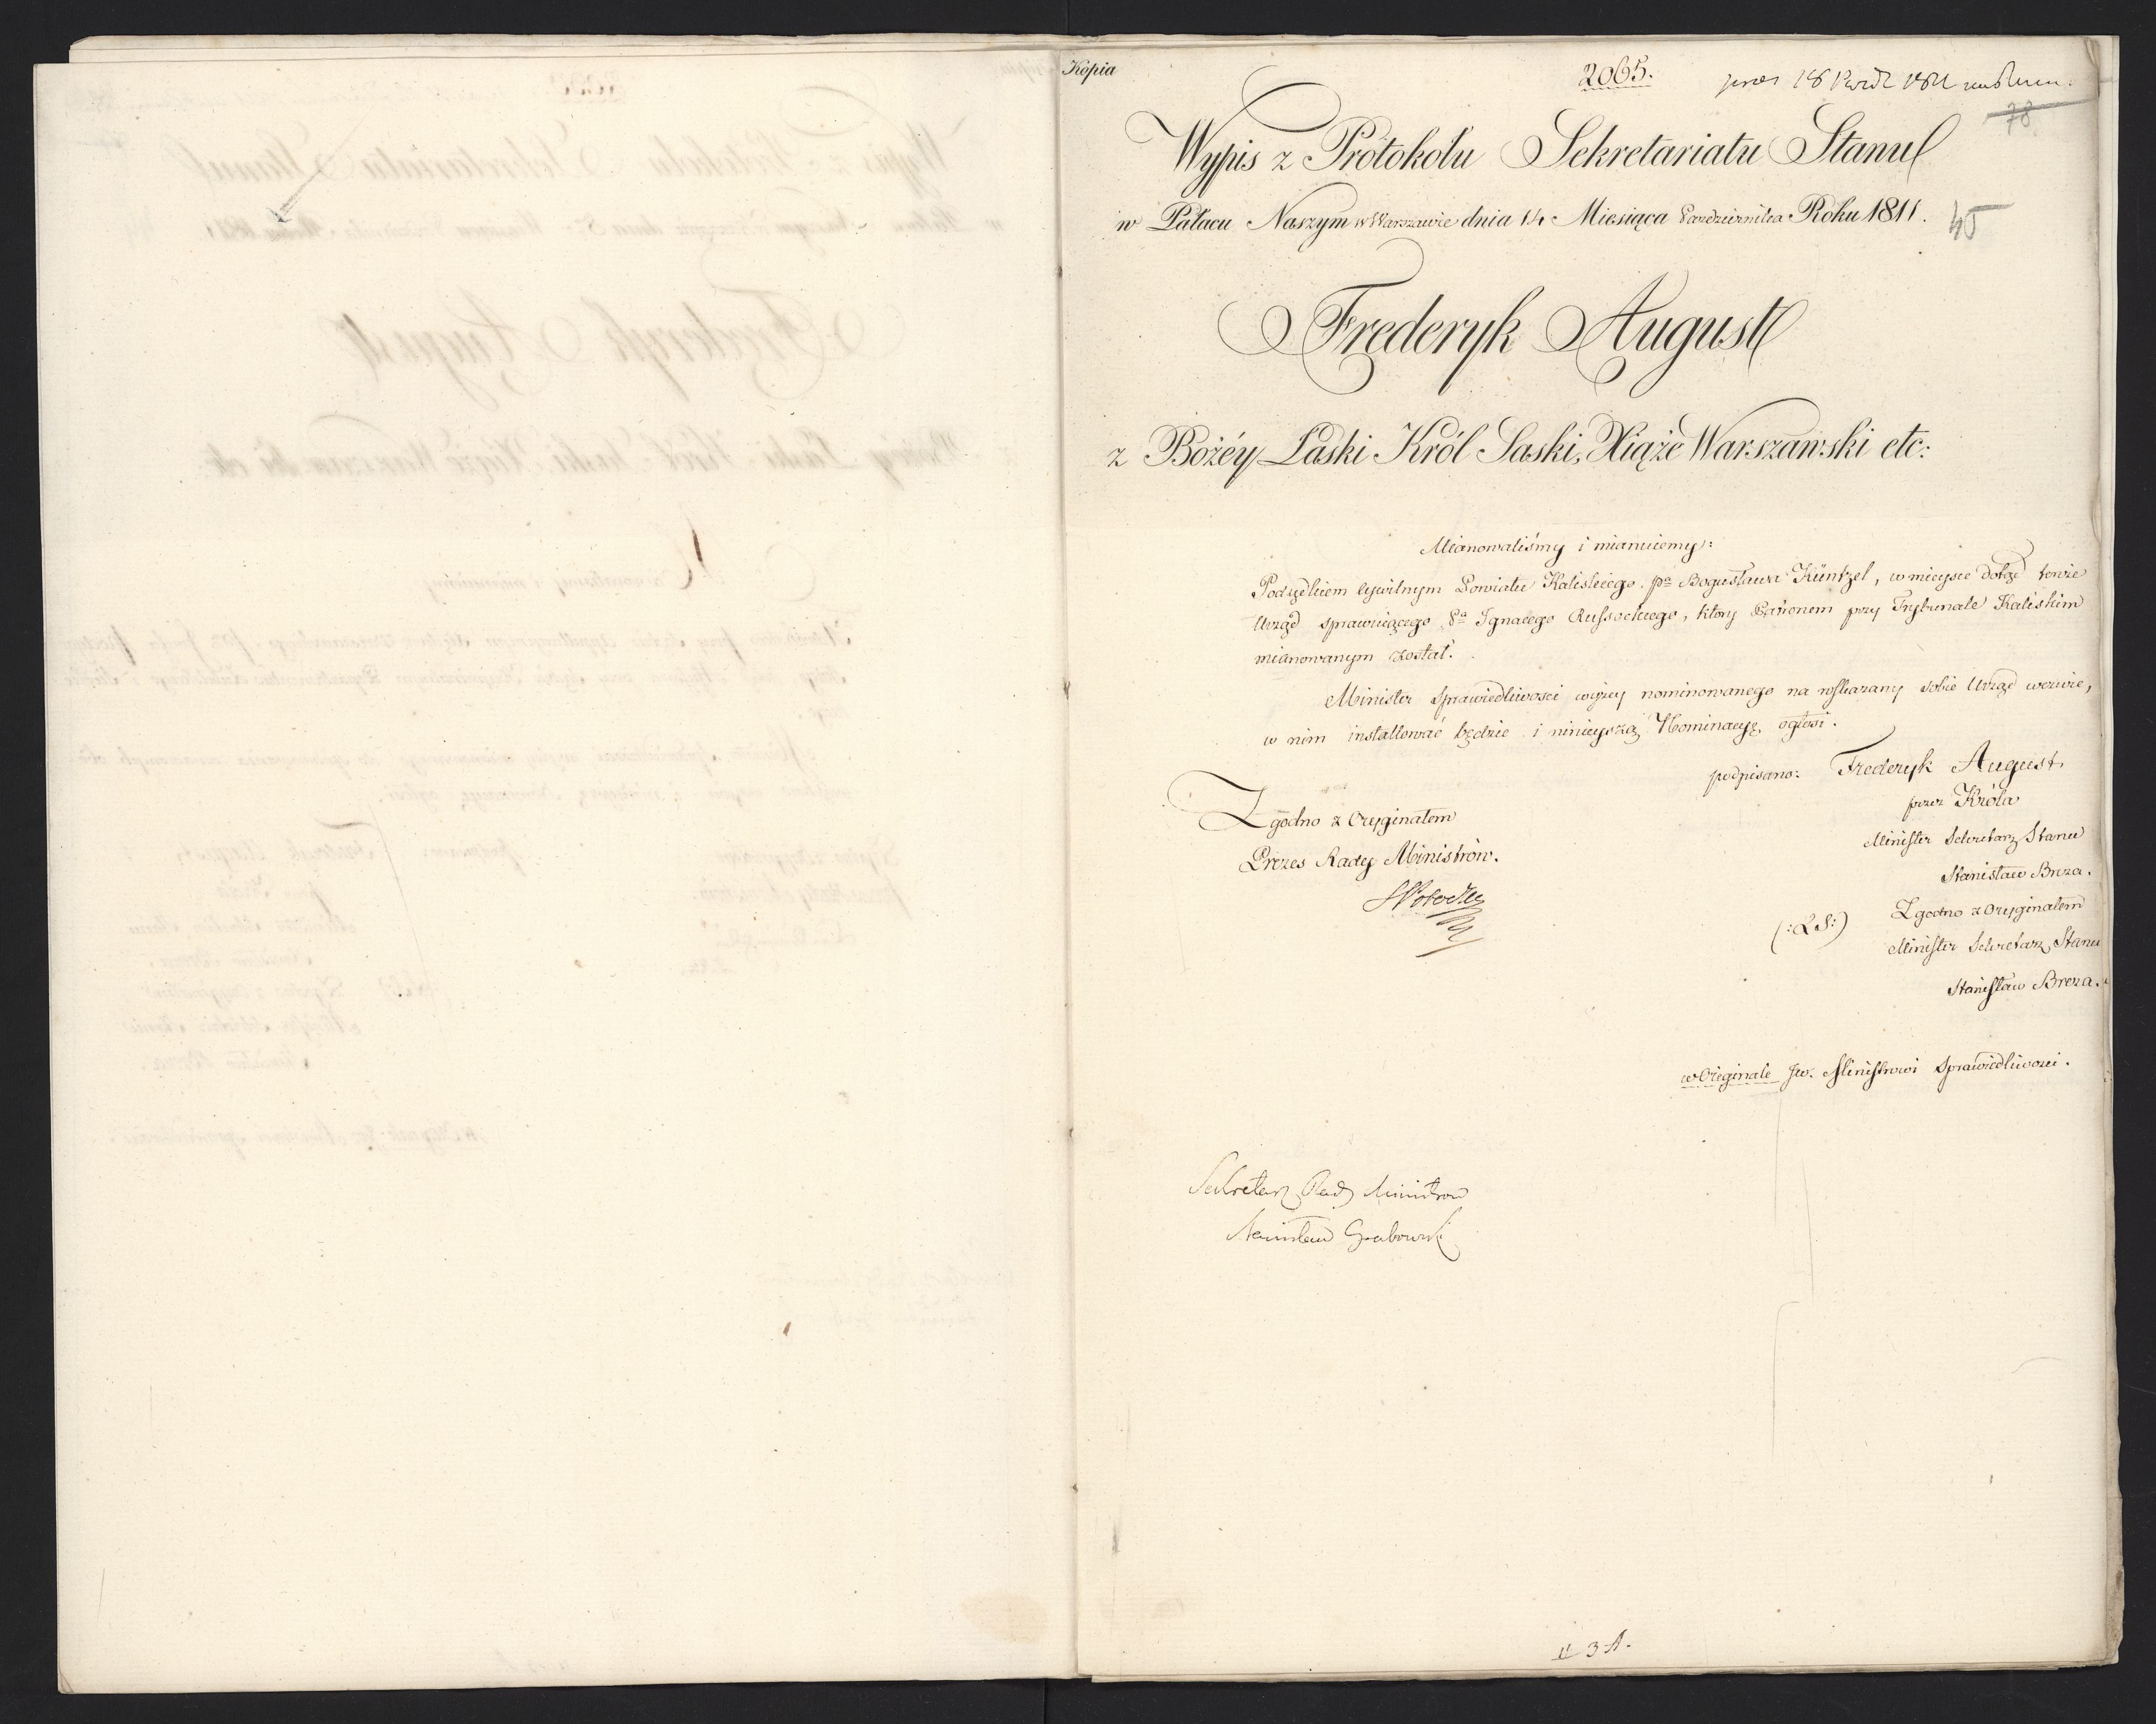 Kopia
2065.
78
Wypis z Protokołu Sekretariatu Stanu
w Pałacu Naszym w Warszawie dnia 14 Miesiąca Pazdziernika Roku 1811.
45
Frederyk August
z Bożéy Łaski Król Saski, Xiążę Warszawski etc:
Mianowaliśmy i mianuiemy:
Podsędkiem cywilnym Powiatu Kaliskiego, Pa Bogusława Küntzel, w mieysce dotąd tenże
Urząd sprawuiącego Pa Ignacego Russockiego, ktory Pisarzem przy Trybunale Kaliskim
mianowanym został.
Minister Sprawiedliwosci wyżey nominowanego na wskazany sobie Urząd wezwie,
w nim installować będzie i ninieyszą Nominacyę ogłosi.
podpisano: Frederyk August
przez Króla
Minister Sekretarz Stanu
Stanisław Breza.
Zgodno z Oryginałem
Prezes Rady Ministrów.
SPotocki
(:LS:)
Zgodno z Oryginałem
Minister Sekretarz Stanu
Stanisław Breza.
w Oryginale Jw. Ministrowi Sprawiedliwosci.
Sekretarz Rady Ministrow
Stanisław Grabowski